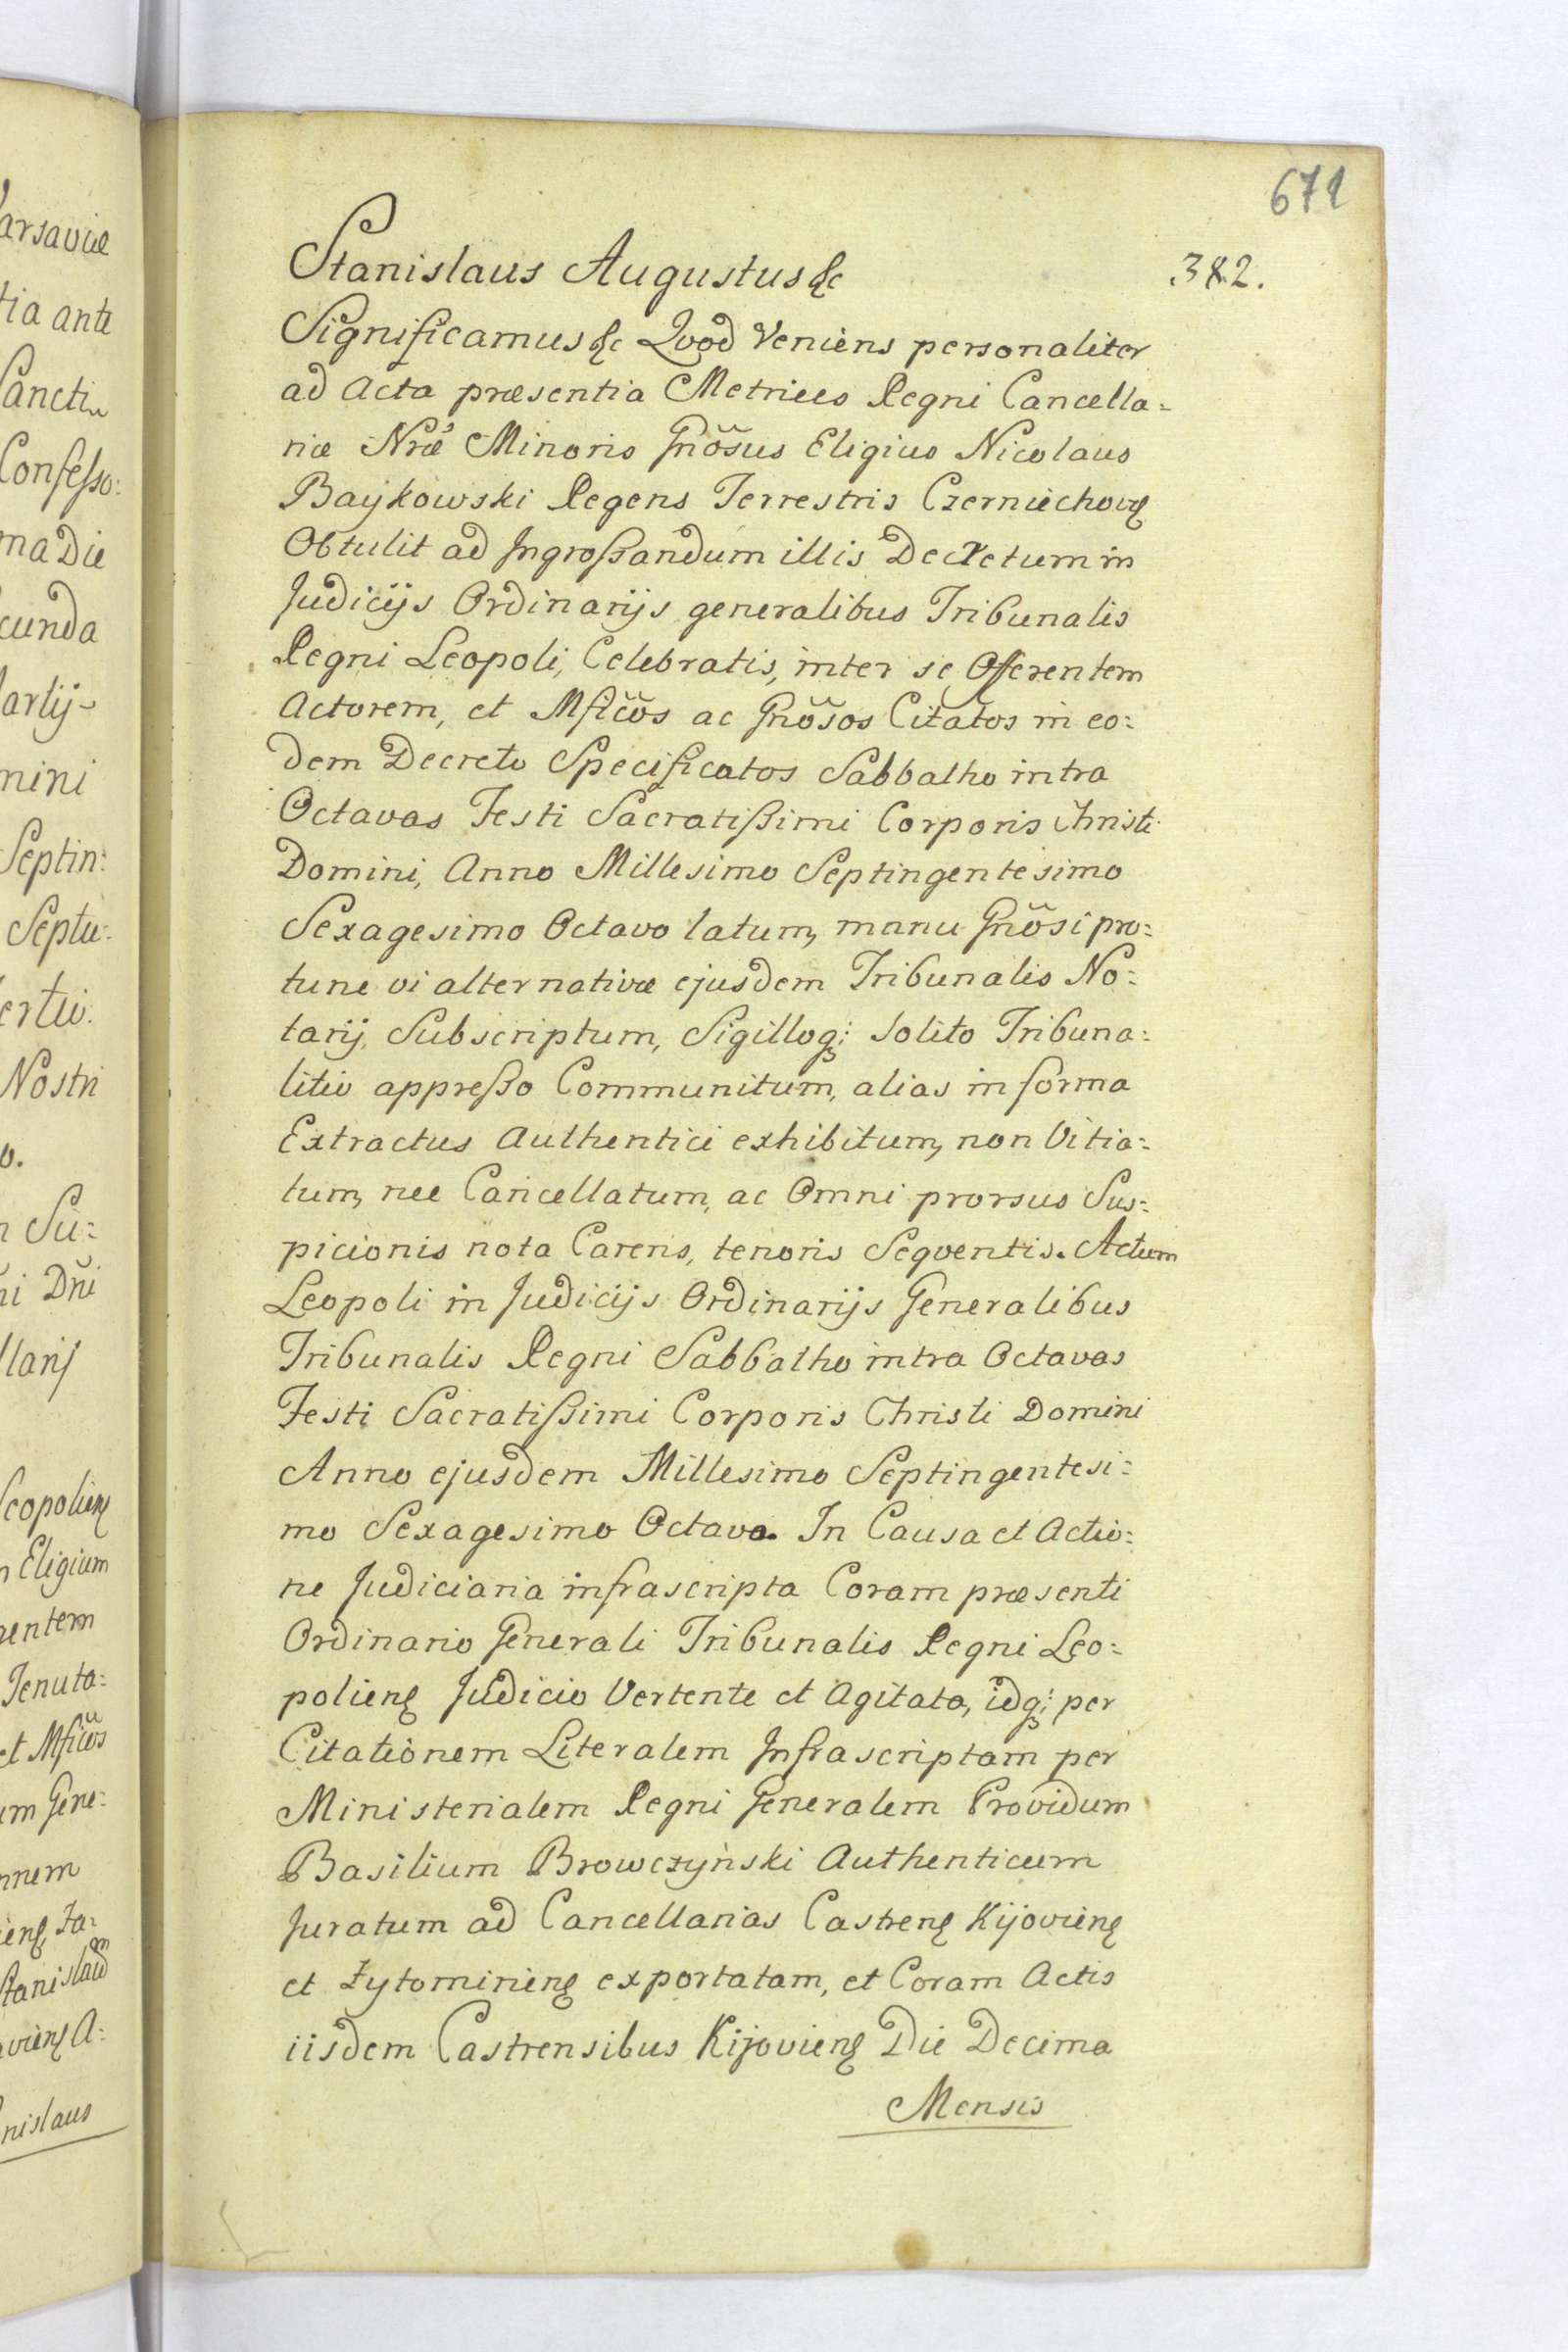 671
382.
Stanislaus Augustus &c
Significamus &c Qvod Veniens personaliter
ad Acta præsentia Metrices Regni Cancella=
riæ Nræ Minoris Gnosus Eligius Nicolaus
Baykowski Regens Terrestris Czerniechov
Obtulit ad Ingroßandum illis Decretum in
Judicijs Ordinarijs generalibus Tribunalis
Regni Leopoli, Celebratis, inter se Offerentem
Actorem, et Mficos ac Gnosos Citatos in eo:
dem Decreto Specificatos Sabbatho intra
Octavas Festi Sacratißimi Corporis Christi
Domini, Anno Millesimo Septingentesimo
Sexagesimo Octavo latum, manu Gnosi pro:
tunc vi alternativæ ejusdem Tribunalis No:
tarij, Subscriptum, Sigilloq; solito Tribuna:
litio appreßo Communitum, alias in forma
Extractus Authentici exhibitum, non Vitia:
tum, nec Cancellatum, ac Omni prorsus Sus:
picionis nota Carens, tenoris Seqventis. Actum
Leopoli in Judicijs Ordinarijs Generalibus
Tribunalis Regni Sabbatho intra Octavas
Festi Sacratißimi Corporis Christi Domini
Anno ejusdem Millesimo Septingentesi:
mo Sexagesimo Octavo. In Causa et Actio:
ne Judiciaria infrascripta Coram præsenti
Ordinario Generali Tribunalis Regni Leo:
polien Judicio Vertente et Agitata, idq; per
Citationem Literalem Infrascriptam per
Ministerialem Regni Generalem Providum
Basilium Browczyński Authenticum
Juratum ad Cancellarias Castren Kijovien
et Zytomirien exportatam, et Coram Actis
iisdem Castrensibus Kijovien Die Decima
Mensis